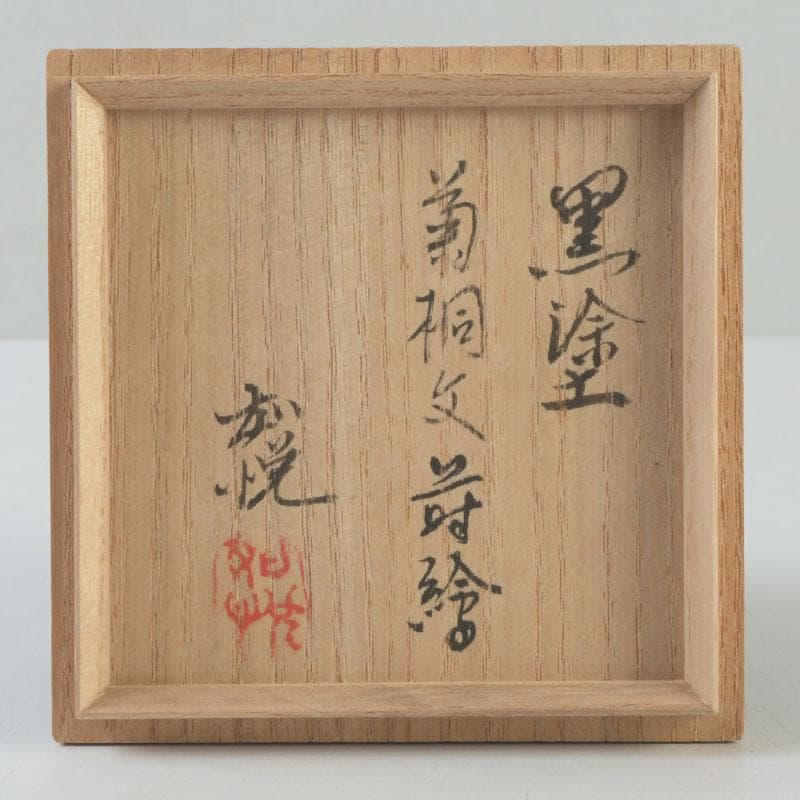 黒塗
菊桐文蒔絵